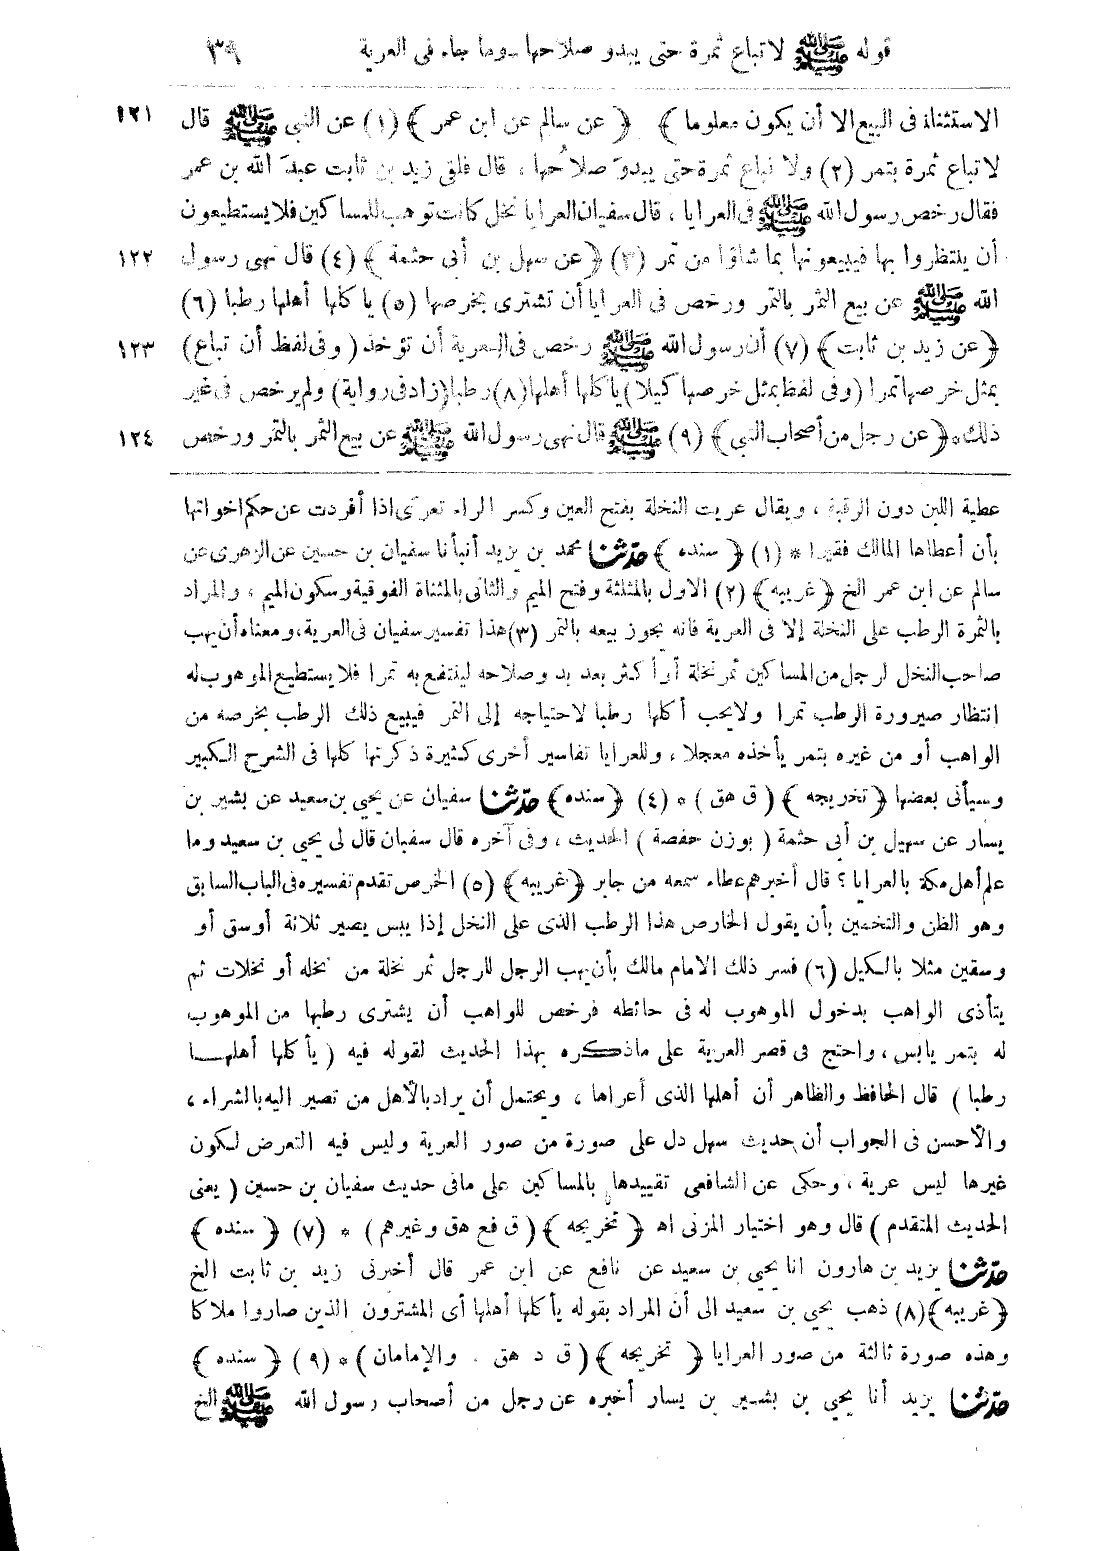 قوله ﷺ لا تباع ثمرة حتى يبدو صلاحها وما جاء فى العرية ٣٩
الاستثناء فى البيع الا أن يكون معلوما ﴾ ﴿ عن سالم عن ابن عمر ﴾ (١) عن النبي ﷺ قال ١٢١
لا تباع ثمرة بتمر (٢) ولا تباع ثمرة حتى يبدوَ صلاحُها ، قال فلقي زيد بن ثابت عبدَ الله بن عمر
فقال رخص رسول الله ﷺ فى العرايا ، قال سفيان العرايا نخل كانت توهب للمساكين فلا يستطيعون
أن ينتظروا بها فيبيعونها بما شاؤا من تمر (٣) ﴿ عن سهل بن أبى حثمة ﴾ (٤) قال نهى رسول ١٢٢
الله ﷺ عن بيع الثمر بالتمر ورخص فى العرايا أن تشترى بخرصها (٥) يأكلها أهلها رطبا (٦)
﴿ عن زيد بن ثابت ﴾ (٧) أن رسول الله ﷺ رخص فى العرية أن تؤخذ ( وفى لفظ أن تباع) ١٢٣
بمثل خرصها تمرا (وفى لفظ بمثل خرصها كيلا) يأكلها أهلها (٨) رطبا (زاد فى رواية) ولم يرخص فى غير
ذلك * ﴿ عن رجل من أصحاب النبي ﴾ (٩) ﷺ قال نهى رسول الله ﷺ عن بيع الثمر بالتمر ورخص ١٢٤
عطية اللبن دون الرقبة ، ويقال عريت النخلة بفتح العين وكسر الراء تعرَى اذا أفردت عن حكم اخواتها
بأن أعطاها المالك فقيرا * (١) ﴿ سنده ﴾ حدّثنا محمد بن يزيد أنبأنا سفيان بن حسين عن الزهرى عن
سالم عن ابن عمر الخ ﴿ غريبه ﴾ (٢) الاول بالمثلثة وفتح الميم والثانى بالمثناة الفوقية وسكون الميم ، والمراد
بالثمرة الرطب على النخلة إلا فى العرية فانه يجوز بيعه بالتمر (٣) هذا تفسير سفيان فى العرية ، ومعناه أن يهب
صاحب النخل لرجل من المساكين ثمر نخلة أو أكثر بعد بدو صلاحه لينتفع به تمرا فلا يستطيع الموهوب له
انتظار صيرورة الرطب تمرا ولا يحب أكلها رطبا لاحتياجه إلى التمر فيبيع ذلك الرطب بخرصه من
الواهب أو من غيره بتمر يأخذه معجلا ، وللعرايا تفاسير أخرى كثيرة ذكرتها كلها فى الشرح الكبير
وسيأتى بعضها ﴿ تخريجه ﴾ ( ق هق ) * (٤) ﴿ سنده ﴾ حدّثنا سفيان عن يحيى بن سعيد عن بشير بن
يسار عن سهيل بن أبى حثمة ( بوزن حفصة ) الحديث ، وفى آخره قال سفيان قال لى يحيى بن سعيد وما
علم أهل مكة بالعرايا ؟ قال أخبرهم عطاء سمعه من جابر ﴿ غريبه ﴾ (٥) الخرص تقدم تفسيره فى الباب السابق
وهو الظن والتخمين بأن يقول الخارص هذا الرطب الذى على النخل إذا يبس يصير ثلاثة أوسق أو
وسقين مثلا بالكيل (٦) فسر ذلك الامام مالك بأن يهب الرجل للرجل ثمر نخلة من نخله أو نخلات ثم
يتأذى الواهب بدخول الموهوب له فى حائطه فرخص للواهب أن يشترى رطبها من الموهوب
له بتمر يابس ، واحتج فى قصر العرية على ماذكره بهذا الحديث لقوله فيه ( يأكلها أهلها
رطبا ) قال الحافظ والظاهر أن أهلها الذى أعراها ، ويحتمل أن يراد بالأهل من تصير اليه بالشراء ،
والأحسن فى الجواب أن حديث سهل دل على صورة من صور العرية وليس فيه التعرض لكون
غيرها ليس عرية ، وحكى عن الشافعى تقييدها بالمساكين على مافى حديث سفيان بن حسين ( يعنى
الحديث المتقدم ) قال وهو اختيار المزنى اه ﴿ تخريجه ﴾ ( ق فع هق وغيرهم ) * (٧) ﴿ سنده ﴾
حدّثنا يزيد بن هارون انا يحيى بن سعيد عن نافع عن ابن عمر قال أخبرنى زيد بن ثابت الخ
﴿ غريبه ﴾ (٨) ذهب يحيى بن سعيد الى أن المراد بقوله يأكلها أهلها أى المشترون الذين صاروا ملاكا
وهذه صورة ثالثة من صور العرايا ﴿ تخريجه ﴾ ( ق د هق . والإمامان ) * (٩) ﴿ سنده ﴾
حدّثنا يزيد أنا يحيى بن بشير بن يسار أخبره عن رجل من أصحاب رسول الله ﷺ الخ